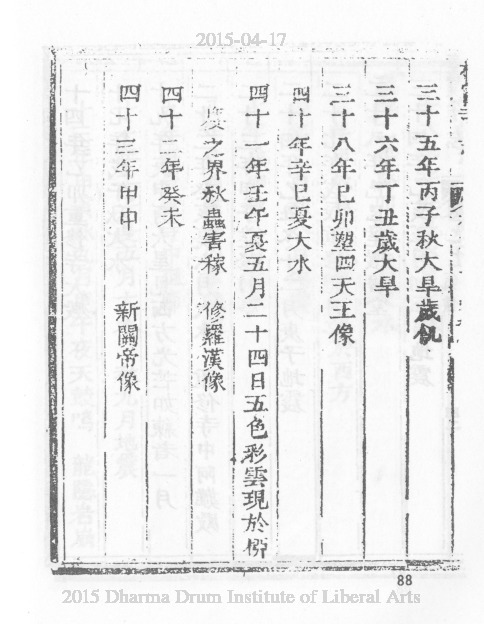 2015-04-17
三十五年丙子秋大旱歲飢
三十六年丁丑歲大旱
三十八年巳卯塑四天王像
四十年辛巳夏大水
四十一年壬午夏五月二十四日五色彩雲現於檀
度之界秋蟲害稼 修羅漢像
四十二年癸未
四十三年甲申 新關帝像
88
2015 Dharma Drum Institute of Liberal Arts